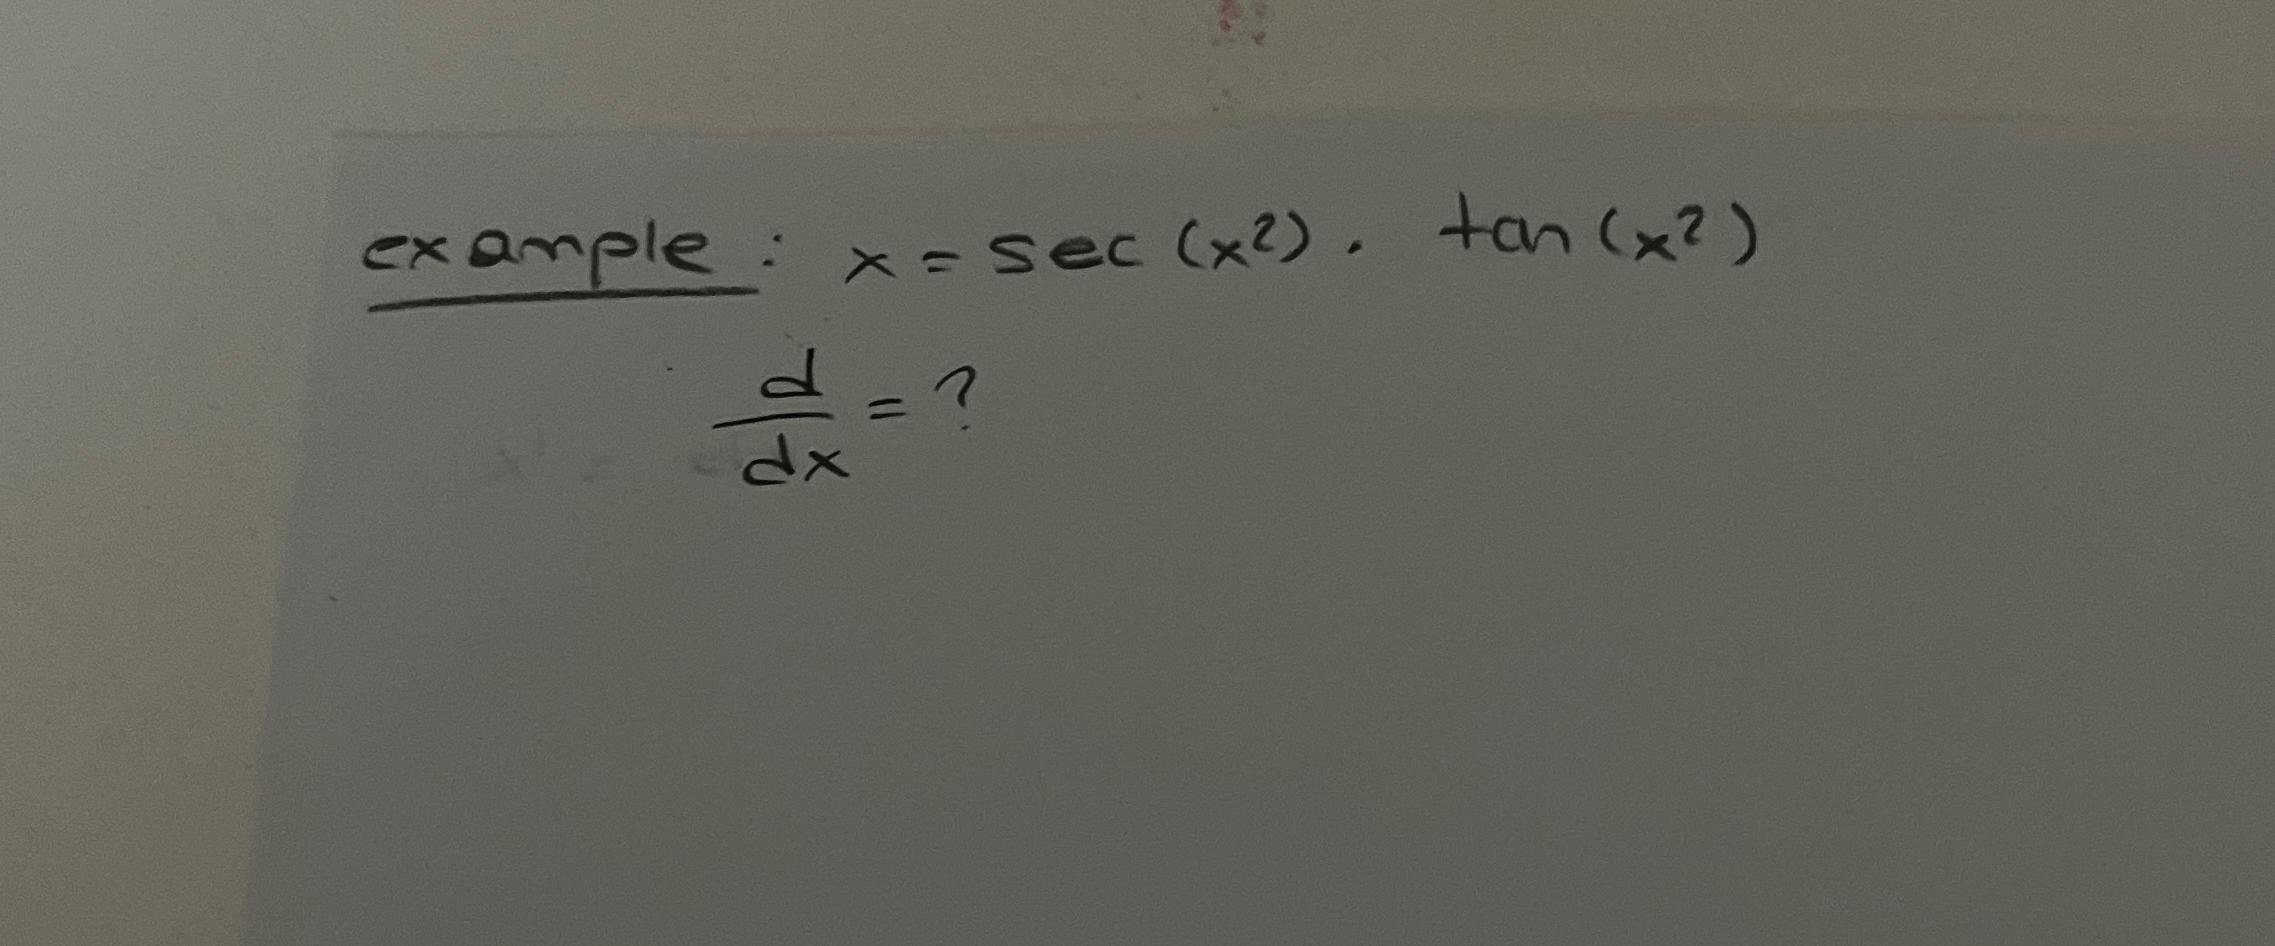 example : x = sec (x²) . tan (x²)
d/dx = ?